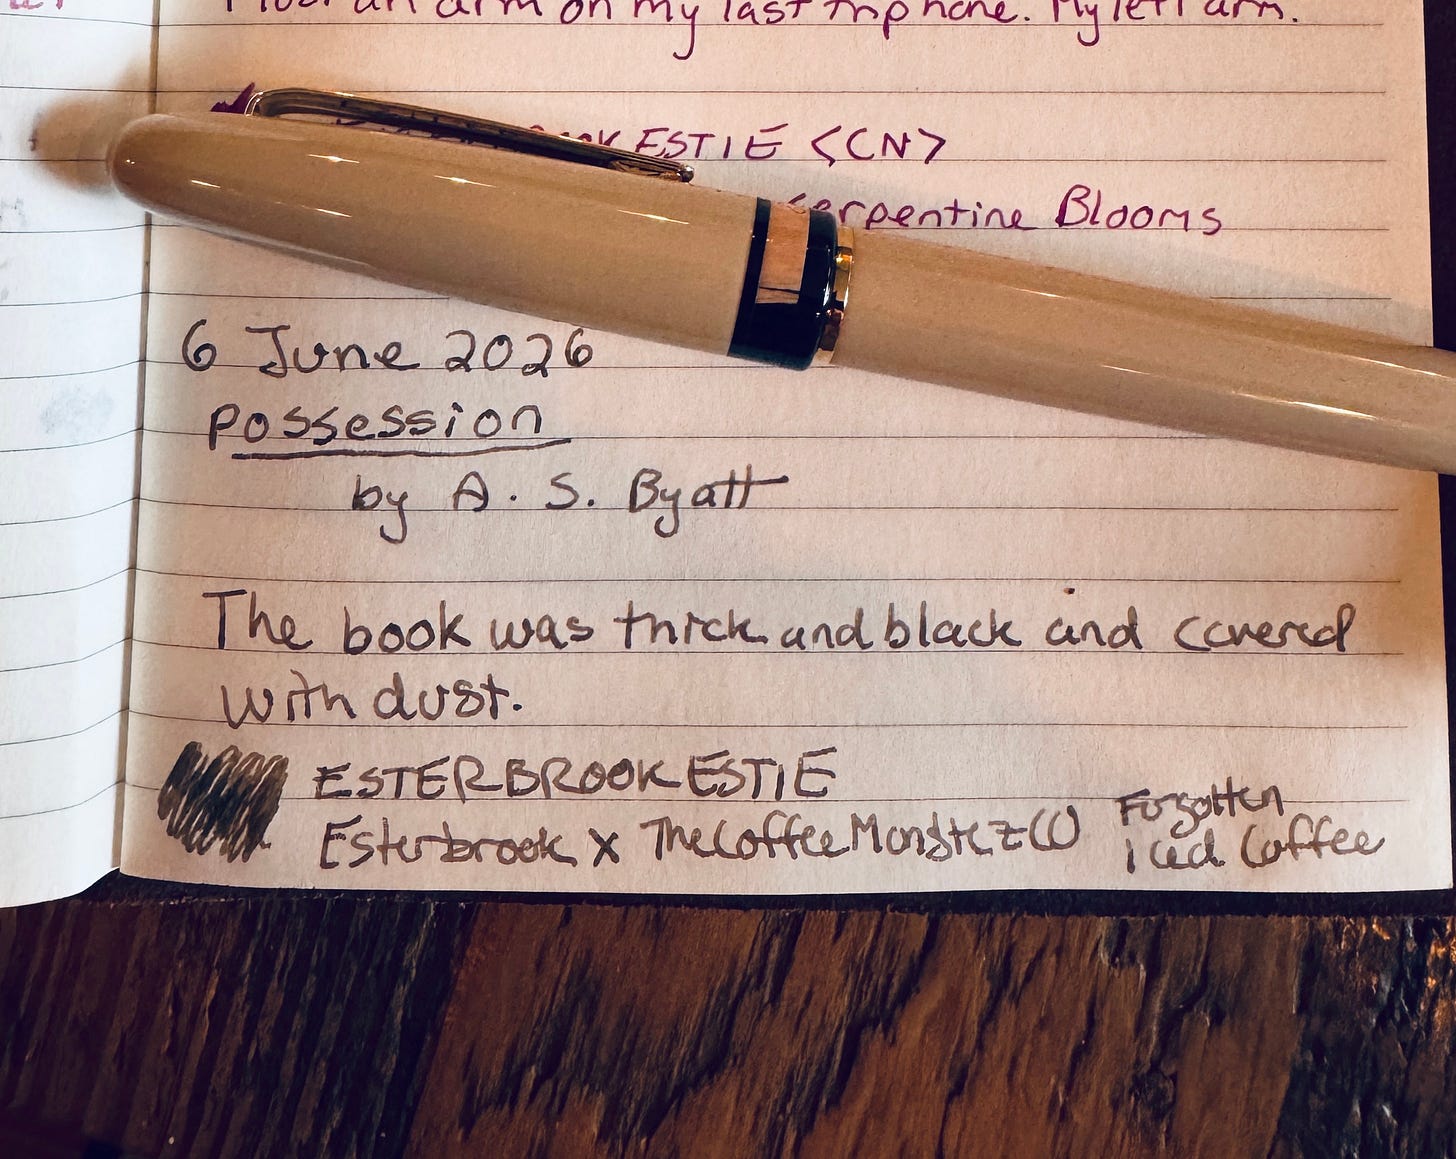 I lost an arm on my last trip home. My left arm.
ESTIE <CN>
Serpentine Blooms
6 June 2026
Possession
by A. S. Byatt
The book was thick and black and covered
with dust.
ESTERBROOK ESTIE
Esterbrook x TheCoffeeMonsterzCO
Forgotten
iced Coffee